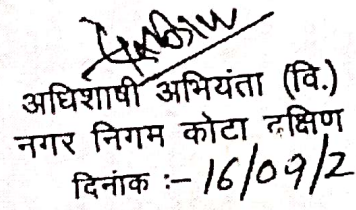 अधिशाषी अभियंता (वि.)
नगर निगम कोटा दक्षिण
दिनांक :- 16/09/2